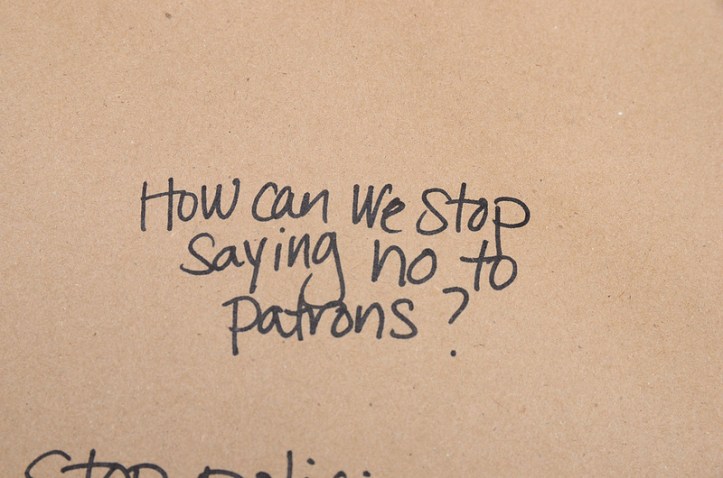 How can we stop
saying no to
patrons?
Stop